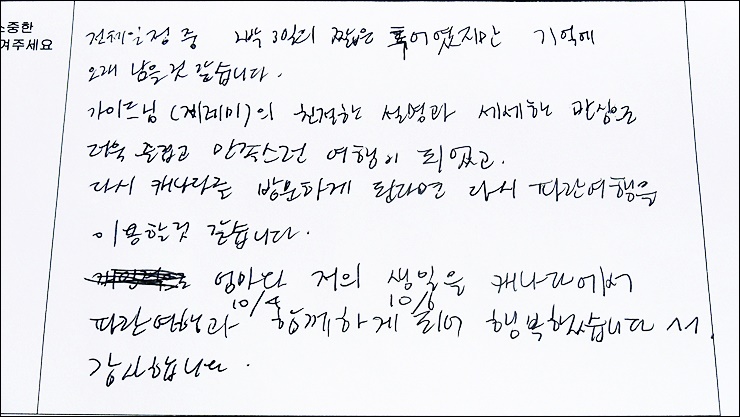 소중한
겨주세요
전체일정 중 2박 3일의 짧은 투어였지만 기억에
오래 남을것 같습니다.
가이드님 (제레미)의 친절한 설명과 세세한 반상으로
더욱 즐겁고 만족스런 여행이 되었고.
다시 캐나다를 방문하게 된다면 다시 파란여행을
이용할것 같습니다.
엄마와 저의 생일을 캐나다에서
10/4 10/6
파란여행과 함께하게 되어 행복했습니다 ^^.
감사합니다.